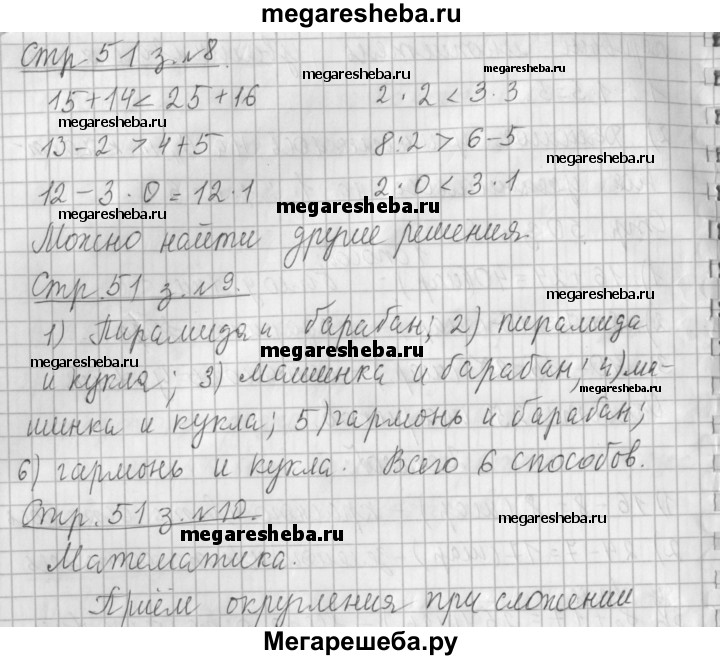 megaresheba.ru
Стр 51 з. №8.
megaresheba.ru
megaresheba.ru
15+14< 25+16 2·2 < 3·3
megaresheba.ru
13-2 > 4+5 8:2 > 6-5
megaresheba.ru
12-3·0 = 12·1 2·0 < 3·1
megaresheba.ru
megaresheba.ru
Можно найти другие решения.
Стр. 51 з. №9.
megaresheba.ru
1) Пирамида и барабан; 2) пирамида
megaresheba.ru
megaresheba.ru
и кукла; 3) машинка и барабан; 4) ма-
шинка и кукла; 5) гармонь и барабан;
6) гармонь и кукла. Всего 6 способов.
Стр. 51 з. №10.
megaresheba.ru
megaresheba.ru
megaresheba.ru
Математика.
Приём округления при сложении
Мегарешеба.ру